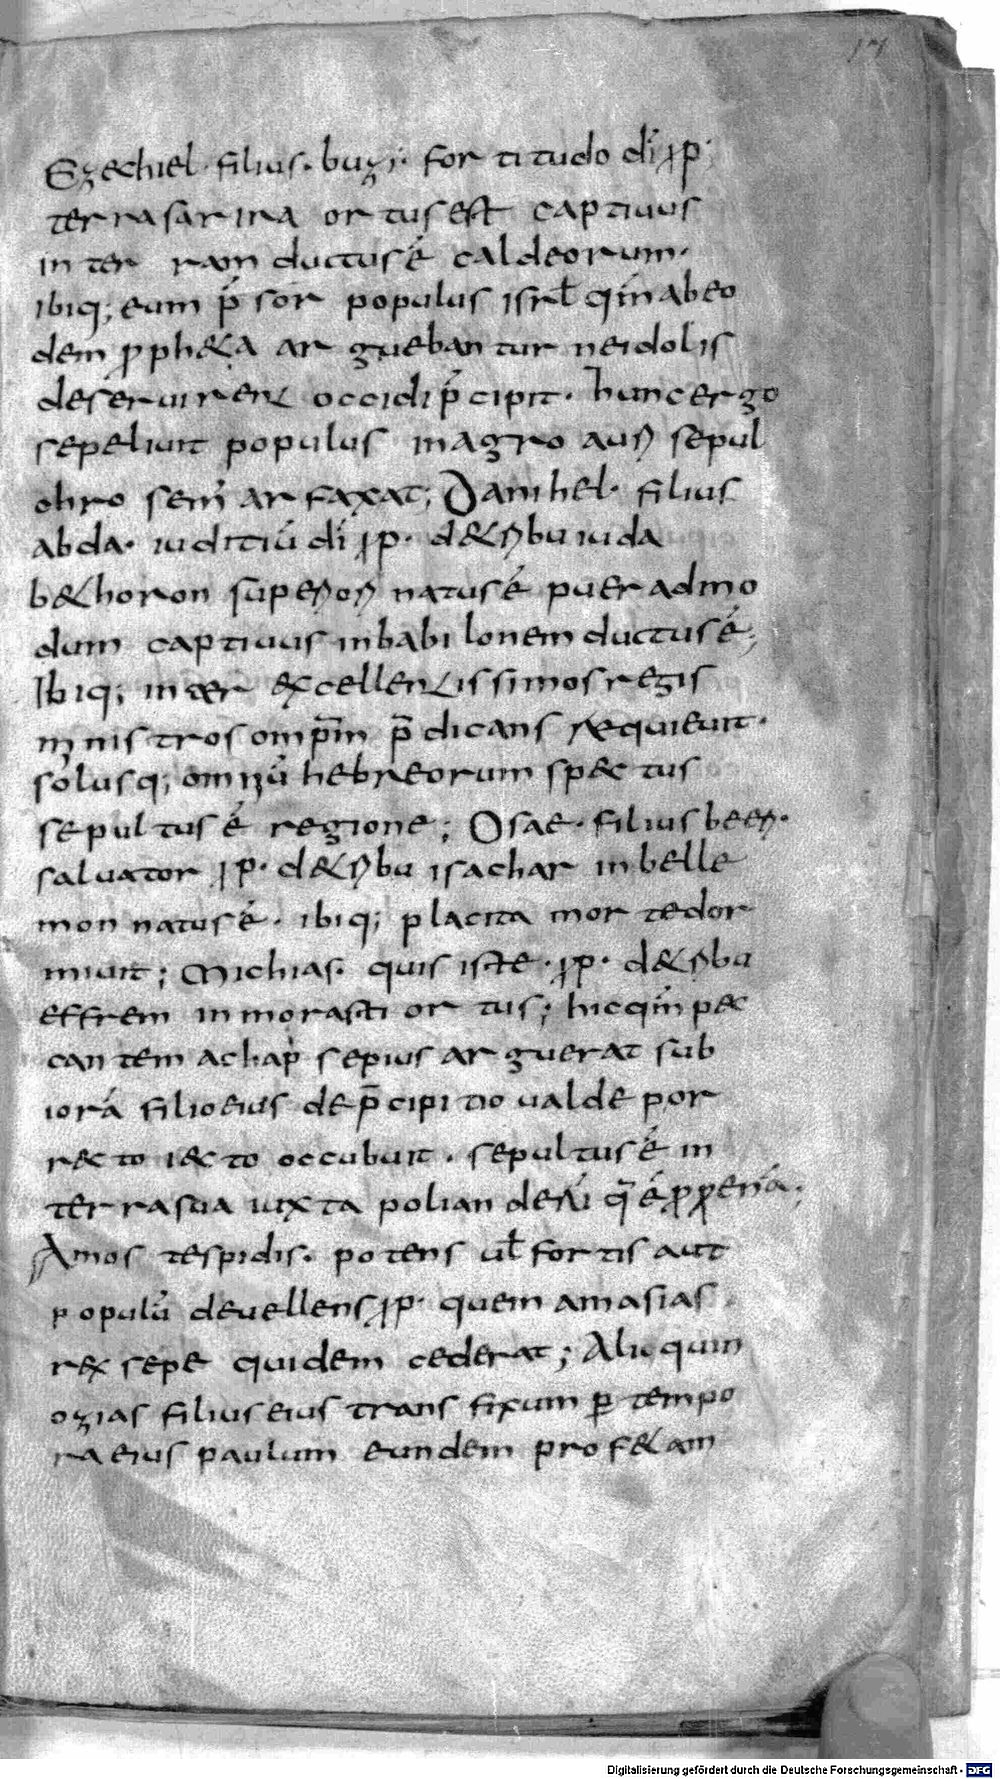 17
Ezechiel· filius· buzi· fortitudo dī ꝓp·
terra sarira ortus est captiuus
inter ram ductus é caldeorum·
ibiq; eum p̄sor populus isrł qm̄ ab eo
dem ꝓph&a arguebantur ne idolis
deseruirent occidi p̄cipit· hunc ergo
sepeliuit populus in agro sepul
chro sem arfaxat; Danihel· filius
abda· iuditiū dī ꝓp· de iuda
b&horon natus é puer admo
dum captiuus in babilonem ductus é;
Ibiq; inter excellentissimos regis
ministros p̄dicans requieuit·
solusq; hebreorum spectus
sepultus é regione; Osae· filius
saluator ꝓp· de isachar in belle
mon natus é· ibiq; placita morte dor
miuit; Michias· quis iste· ꝓp· de
effrem in morasti ortus; hic qm̄ pec
cantem achap sepius arguerat sub
iorā filio eius de p̄cipitio ualde por
recto iecto occubuit· sepultus é in
terra sua iuxta polian
Amos tespidis· potens uł fortis aut
populū deuellens ꝓp· quem amasias
rex sepe quidem cederat; Alioquin
ozias filius eius transfixum ꝑ tempo
ra eius paulum eundem prof&am
Digitalisierung gefördert durch die Deutsche Forschungsgemeinschaft · DFG